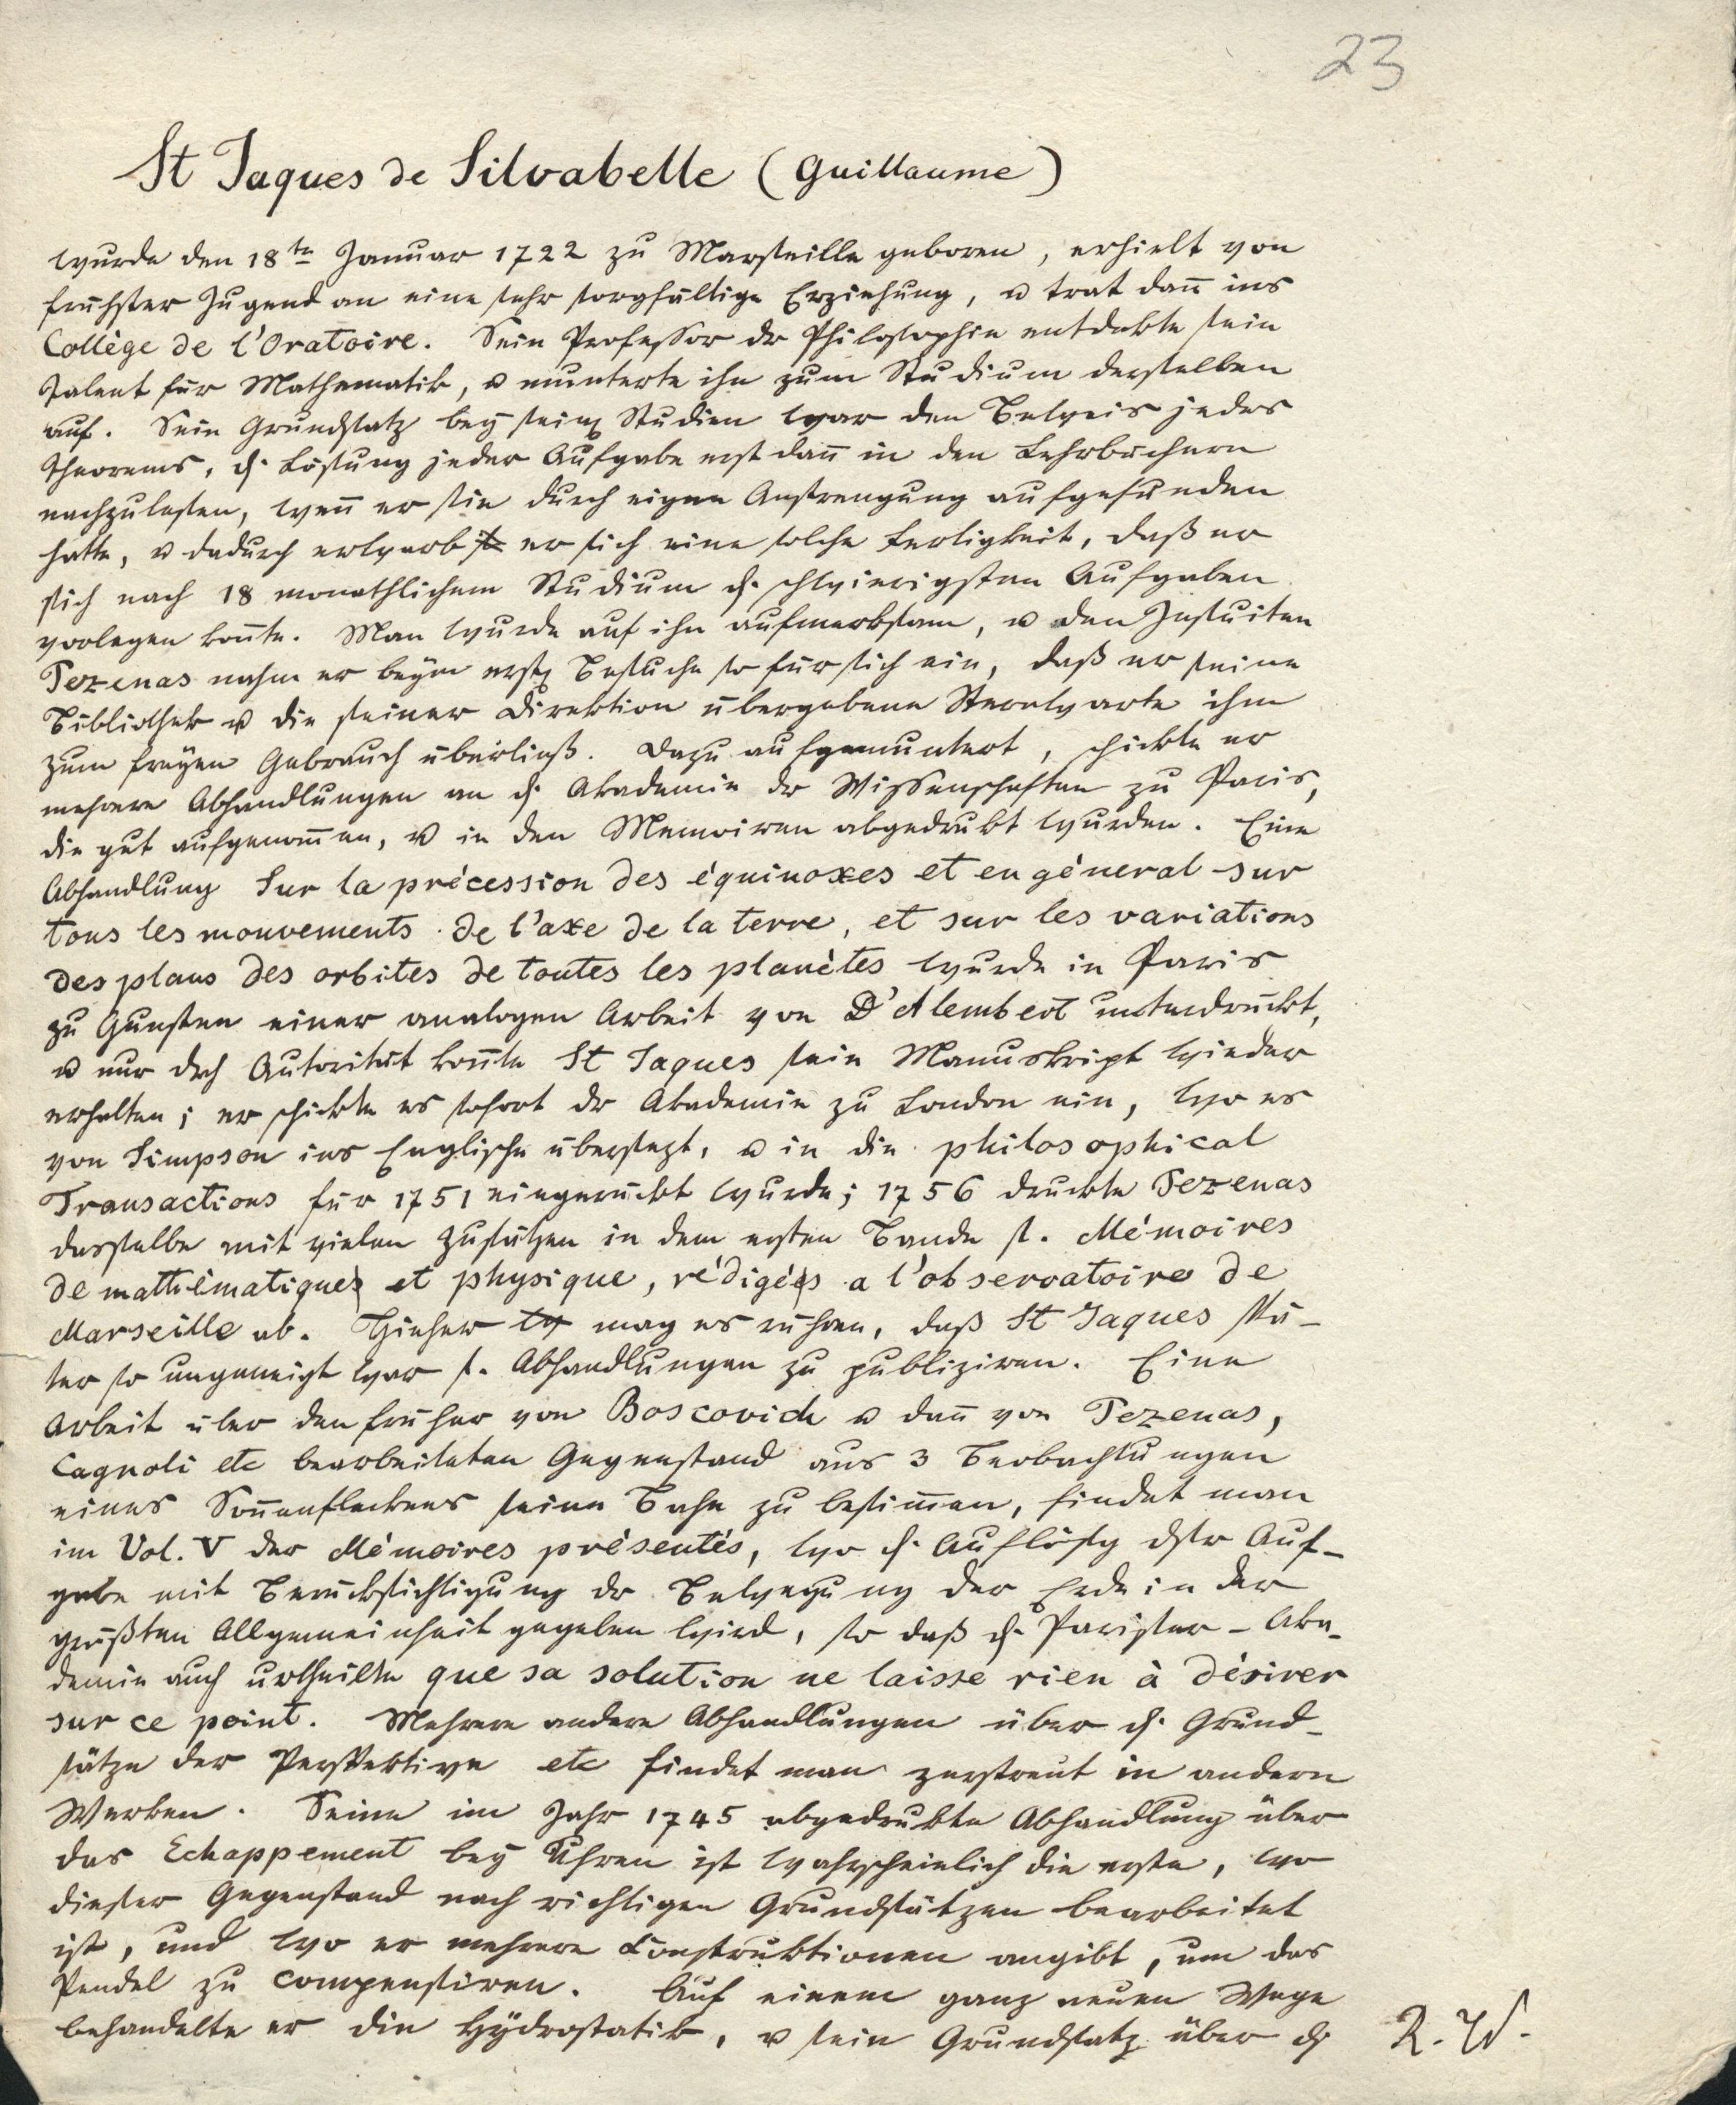 23
St Jaques de Silvabelle (Guillaume)
wurde den 18tn Januar 1722 zu Marseille geboren, erhielt von
frühster Jugend an eine sehr sorgfältige Erziehung, u trat dan̄ ins
Collège de l'Oratoire. Sein Professor dr Philosophie entdekte sein
Talent für Mathematik, u munterte ihn zum Studium derselben
auf. Sein Grundsatz bey sein Studien war den Beweis jedes
Theorems, d. Lösung jeder Aufgabe erst dan̄ in den Lehrbüchern
nachzulesen, wen̄ er sie durch eigene Anstrengung aufgefunden
hatte, u dadurch erwarb er sich eine solche Fertigkeit, daß er
sich nach 18 monathlichem Studium d. schwierigsten Aufgaben
vorlegen kon̄te. Man wurde auf ihn aufmerksam, u den Jesuiten
Pezenas nahm er beym erst Besuche so für sich ein, daß er seine
Bibliothek u die seiner Direktion übergebene Sternwarte ihm
zum freyen Gebrauch überließ. Dazu aufgemuntert, schickte er
mehrere Abhandlungen an d. Akademie dr Wissenschaften zu Paris,
die gut aufgenom̄en, u in den Memoiren abgedrukt wurden. Eine
Abhandlung Sur la précession des équinoxes et en géneral sur
tous les mouvements de l'axe de la terre, et sur les variations
des plans des orbites de toutes les planètes wurde in Paris
zu Gunsten einer analogen Arbeit von D'Alembert unterdrückt,
u nur dch Autorität kon̄te St Jaques sein Manuskript wieder
erhalten; er schickte es sofort dr Akademie zu London ein, wo es
von Simpson ins Englische übersezt, u in die philosophical
Transactions für 1751 eingerückt wurde; 1756 druckte Pezenas
dasselbe mit vielen Zusätzen in dem ersten Bande s. Mémoires
de mathématiques et physique, rédigées a l'observatoire de
Marseille ab. Hieher mag es rühren, daß St Jaques spä-
ter so ungeneigt war s. Abhandlungen zu publiziren. Eine
Arbeit über den früher von Boscovich u dan̄ von Pezenas,
Cagnoli etc bearbeiteten Gegenstand aus 3 Beobachtungen
eines Son̄enfleckens seine Bahn zu bestim̄en, findet man
im Vol. V der Mémoires présentés, wo d. Auflösg dsr Auf-
gabe mit Berücksichtigung dr Bewegung der Erde in der
größten Allgemeinheit gegeben wird, so daß d. Pariser-Aka-
demie auch urtheilte que sa solution ne laisse rien à désirer
sur ce point. Mehrere andere Abhandlungen über d. Grund-
sätze der Perspektive etc findet man zerstreut in andern
Werken. Seine im Jahr 1745 abgedrukte Abhandlung über
das Echappement bey Uhren ist wahrscheinlich die erste, wo
dieser Gegenstand nach richtigen Grundsätzen bearbeitet
ist, und wo er mehrere Construktionen angibt, um das
Pendel zu compensiren. Auf einem ganz neuen Wege
behandelte er die Hydrostatik, u sein Grundsatz über d
R. W.